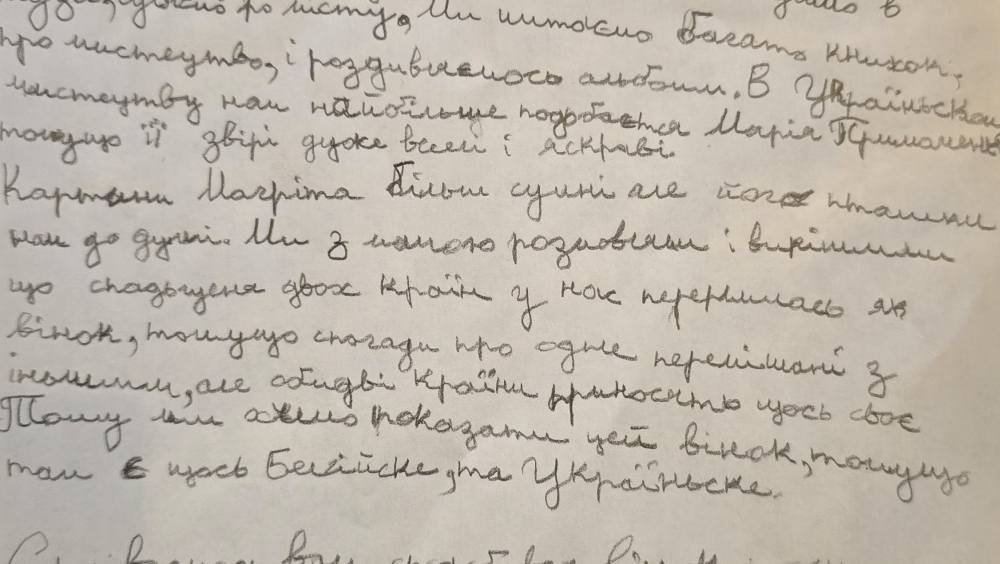 листу, Ми читаємо багато книжок,
про мистецтво, і роздивляємось альбоми. В Українськом
мистецтву нам найбільше подобається Марія Примаченк
тощущо її звірі дуже веселі і яскраві.
Картини Магріта більш сумні але його пташки
нам до душі. Ми з мамою розмовляли і вирішили
що спадьщеня двох країн у нас переплилась як
вінок, томущо спогади про одне перемішані з
іньшими, але обидві країни приносять щось своє
Тому ми хочемо показати цей вінок, томущо
там є щось Бегійске, та Україньське.